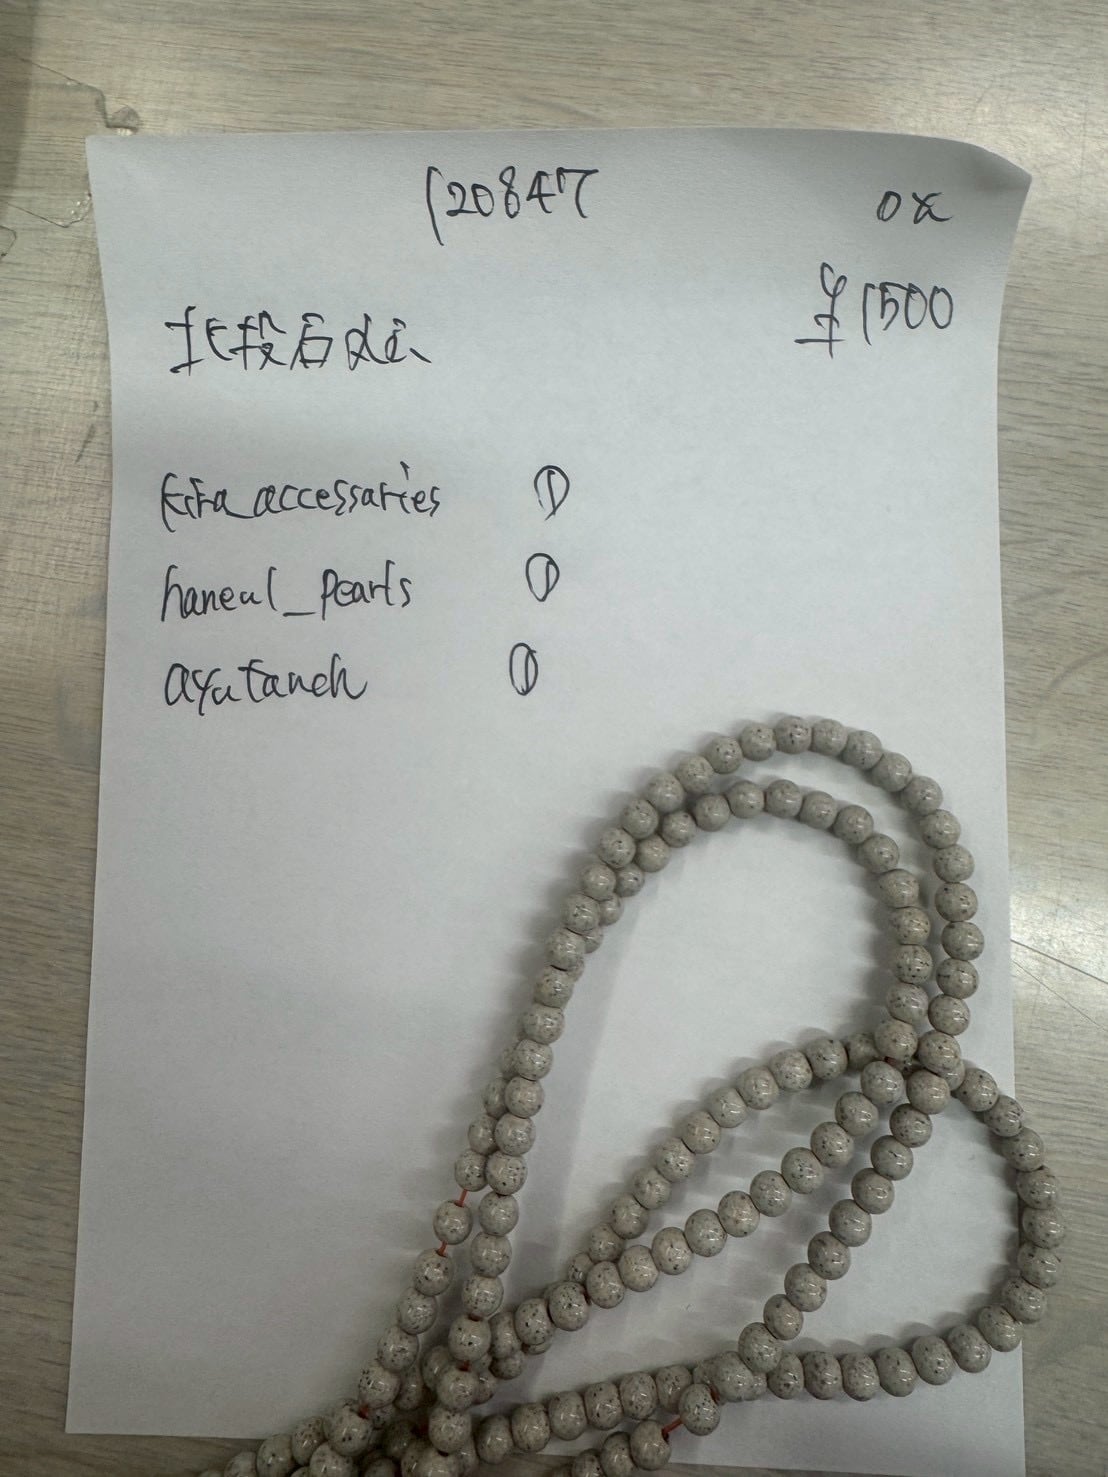 120847
ox
¥1500
北投石
kira_accessaries ①
haneul_pearls ①
ayataneh ①